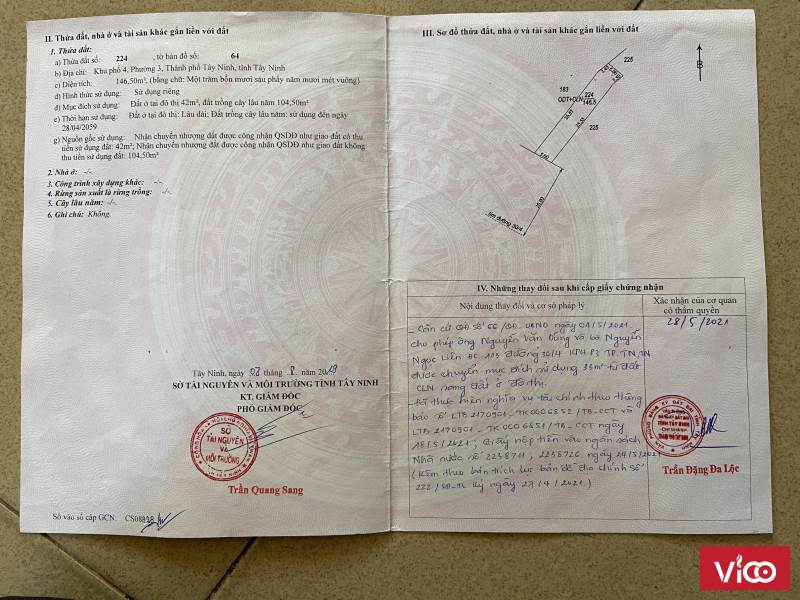 II. Thửa đất, nhà ở và tài sản khác gắn liền với đất
1. Thửa đất:
a) Thửa đất số: 224 , tờ bản đồ số: 64
b) Địa chỉ: Khu phố 4, Phường 3, Thành phố Tây Ninh, tỉnh Tây Ninh
c) Diện tích: 146,50m², (bằng chữ: Một trăm bốn mươi sáu phẩy năm mươi mét vuông)
d) Hình thức sử dụng: Sử dụng riêng
đ) Mục đích sử dụng: Đất ở tại đô thị 42m², đất trồng cây lâu năm 104,50m²
e) Thời hạn sử dụng: Đất ở tại đô thị: Lâu dài; Đất trồng cây lâu năm: sử dụng đến ngày
28/04/2059
g) Nguồn gốc sử dụng: Nhận chuyển nhượng đất được công nhận QSDĐ như giao đất có thu
tiền sử dụng đất: 42m²; Nhận chuyển nhượng đất được công nhận QSDĐ như giao đất không
thu tiền sử dụng đất: 104,50m²
2. Nhà ở: -/-
3. Công trình xây dựng khác: -/-
4. Rừng sản xuất là rừng trồng: -/-
5. Cây lâu năm: -/-
6. Ghi chú: Không.
Tây Ninh, ngày 07 tháng 8 năm 2019
SỞ TÀI NGUYÊN VÀ MÔI TRƯỜNG TỈNH TÂY NINH
KT. GIÁM ĐỐC
PHÓ GIÁM ĐỐC
SỞ
TÀI NGUYÊN
VÀ
MÔI TRƯỜNG
Trần Quang Sang
Số vào sổ cấp GCN: CS08838
III. Sơ đồ thửa đất, nhà ở và tài sản khác gắn liền với đất
B
226
183
224
ODT+CLN
146.5
225
5.00
20.00
tim đường 30/4
IV. Những thay đổi sau khi cấp giấy chứng nhận
Nội dung thay đổi và cơ sở pháp lý
Xác nhận của cơ quan
có thẩm quyền
_ Căn cứ QĐ số 66/QĐ-UBND ngày 04/5/2021
cho phép ông Nguyễn Văn Dũng và bà Nguyễn
Ngọc Liên ĐC: 105 đường 30/4 KP4 P3 TP.TN, TN
được chuyển mục đích sử dụng 35m² từ đất
CLN sang đất ở đô thị.
_ Đã thực hiện nghĩa vụ tài chính theo thông
báo số LTB 2170901-TK0006652/TB-CCT và
LTB 2170901-TK0006651/TB-CCT ngày
18/5/2021; Giấy nộp tiền vào ngân sách
Nhà nước số 2238711, 2238726 ngày 24/5/2021
(Kèm theo bản trích lục bản đồ địa chính số
222/SĐ-TL ký ngày 27/4/2021.)
28/5/2021
Trần Đặng Đa Lộc
ViCO